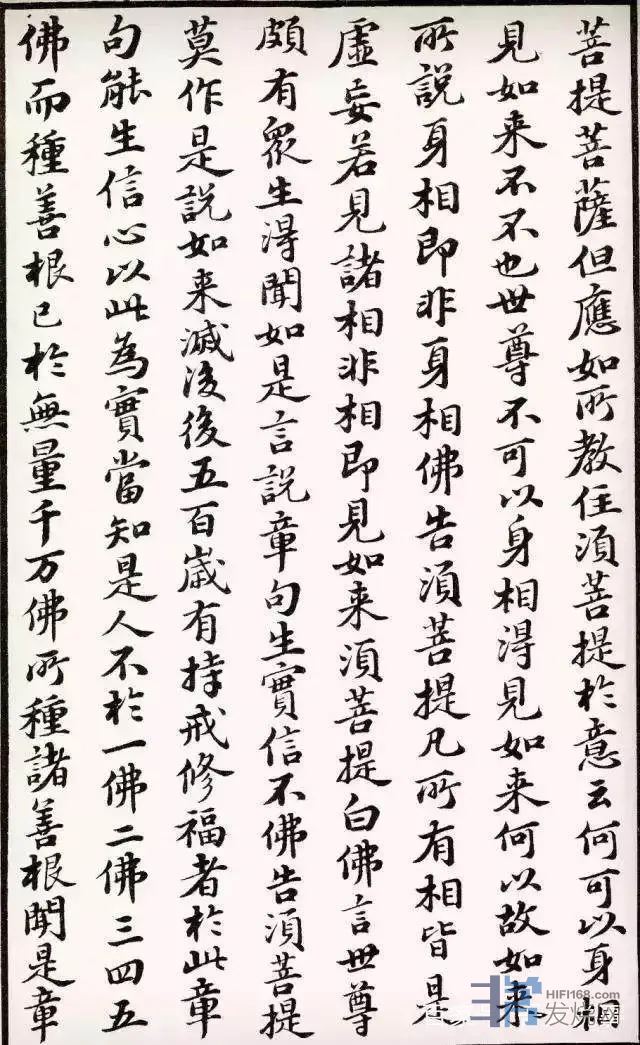 菩提菩薩但應如所教住須菩提於意云何可以身相
見如来不不也世尊不可以身相得見如来何以故如来
所說身相即非身相佛告須菩提凡所有相皆是
虛妄若見諸相非相即見如来須菩提白佛言世尊
頗有眾生得聞如是言說章句生實信不佛告須菩提
莫作是說如来滅後後五百歲有持戒修福者於此章
句能生信心以此為實當知是人不於一佛二佛三四五
佛而種善根已於無量千万佛所種諸善根聞是章
HIFI168.com
发烧网